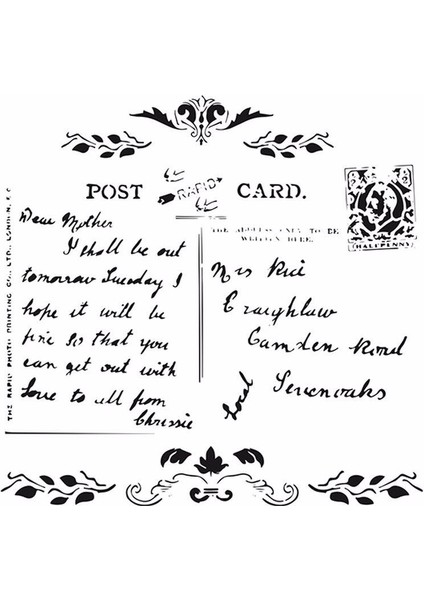 POST CARD.
RAPID
THE ADDRESS ONLY TO BE
WRITTEN HERE.
HALFPENNY
THE RAPID PHOTO PRINTING CO., LTD. LONDON, E.C
Dear Mother
I shall be out
tomorrow Tuesday I
hope it will be
fine so that you
can get out with
Love to all from
Chrissie
Mrs Rice
Craighlaw
Camden Road
Sevenoaks
Local